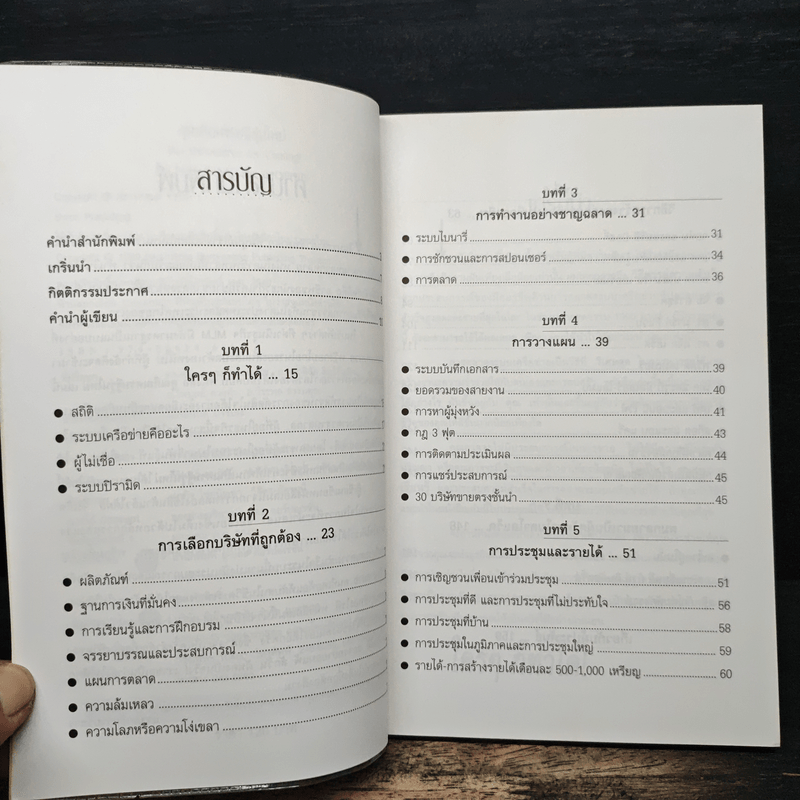 สารบัญ
คำนำสำนักพิมพ์
เกริ่นนำ
กิตติกรรมประกาศ
คำนำผู้เขียน
บทที่ 1
ใครๆ ก็ทำได้ ... 15
● สถิติ
● ระบบเครือข่ายคืออะไร
● ผู้ไม่เชื่อ
● ระบบปิรามิด
บทที่ 2
การเลือกบริษัทที่ถูกต้อง ... 23
● ผลิตภัณฑ์
● ฐานการเงินที่มั่นคง
● การเรียนรู้และการฝึกอบรม
● จรรยาบรรณและประสบการณ์
● แผนการตลาด
● ความล้มเหลว
● ความโลภหรือความโง่เขลา
บทที่ 3
การทำงานอย่างชาญฉลาด ... 31
● ระบบไบนารี่ 31
● การชักชวนและการสปอนเซอร์ 34
● การตลาด 36
บทที่ 4
การวางแผน ... 39
● ระบบบันทึกเอกสาร 39
● ยอดรวมของสายงาน 40
● การหาผู้มุ่งหวัง 41
● กฎ 3 ฟุต 43
● การติดตามประเมินผล 44
● การแชร์ประสบการณ์ 45
● 30 บริษัทขายตรงชั้นนำ 45
บทที่ 5
การประชุมและรายได้ ... 51
● การเชิญชวนเพื่อนเข้าร่วมประชุม 51
● การประชุมที่ดี และการประชุมที่ไม่ประทับใจ 56
● การประชุมที่บ้าน 58
● การประชุมในภูมิภาคและการประชุมใหญ่ 59
● รายได้-การสร้างรายได้เดือนละ 500-1,000 เหรียญ 60